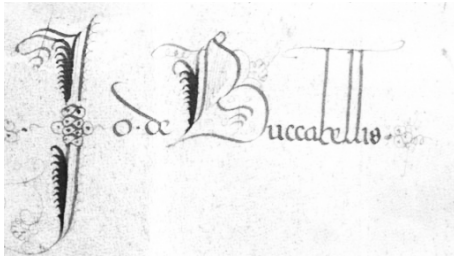 Jo. de Buccabellis